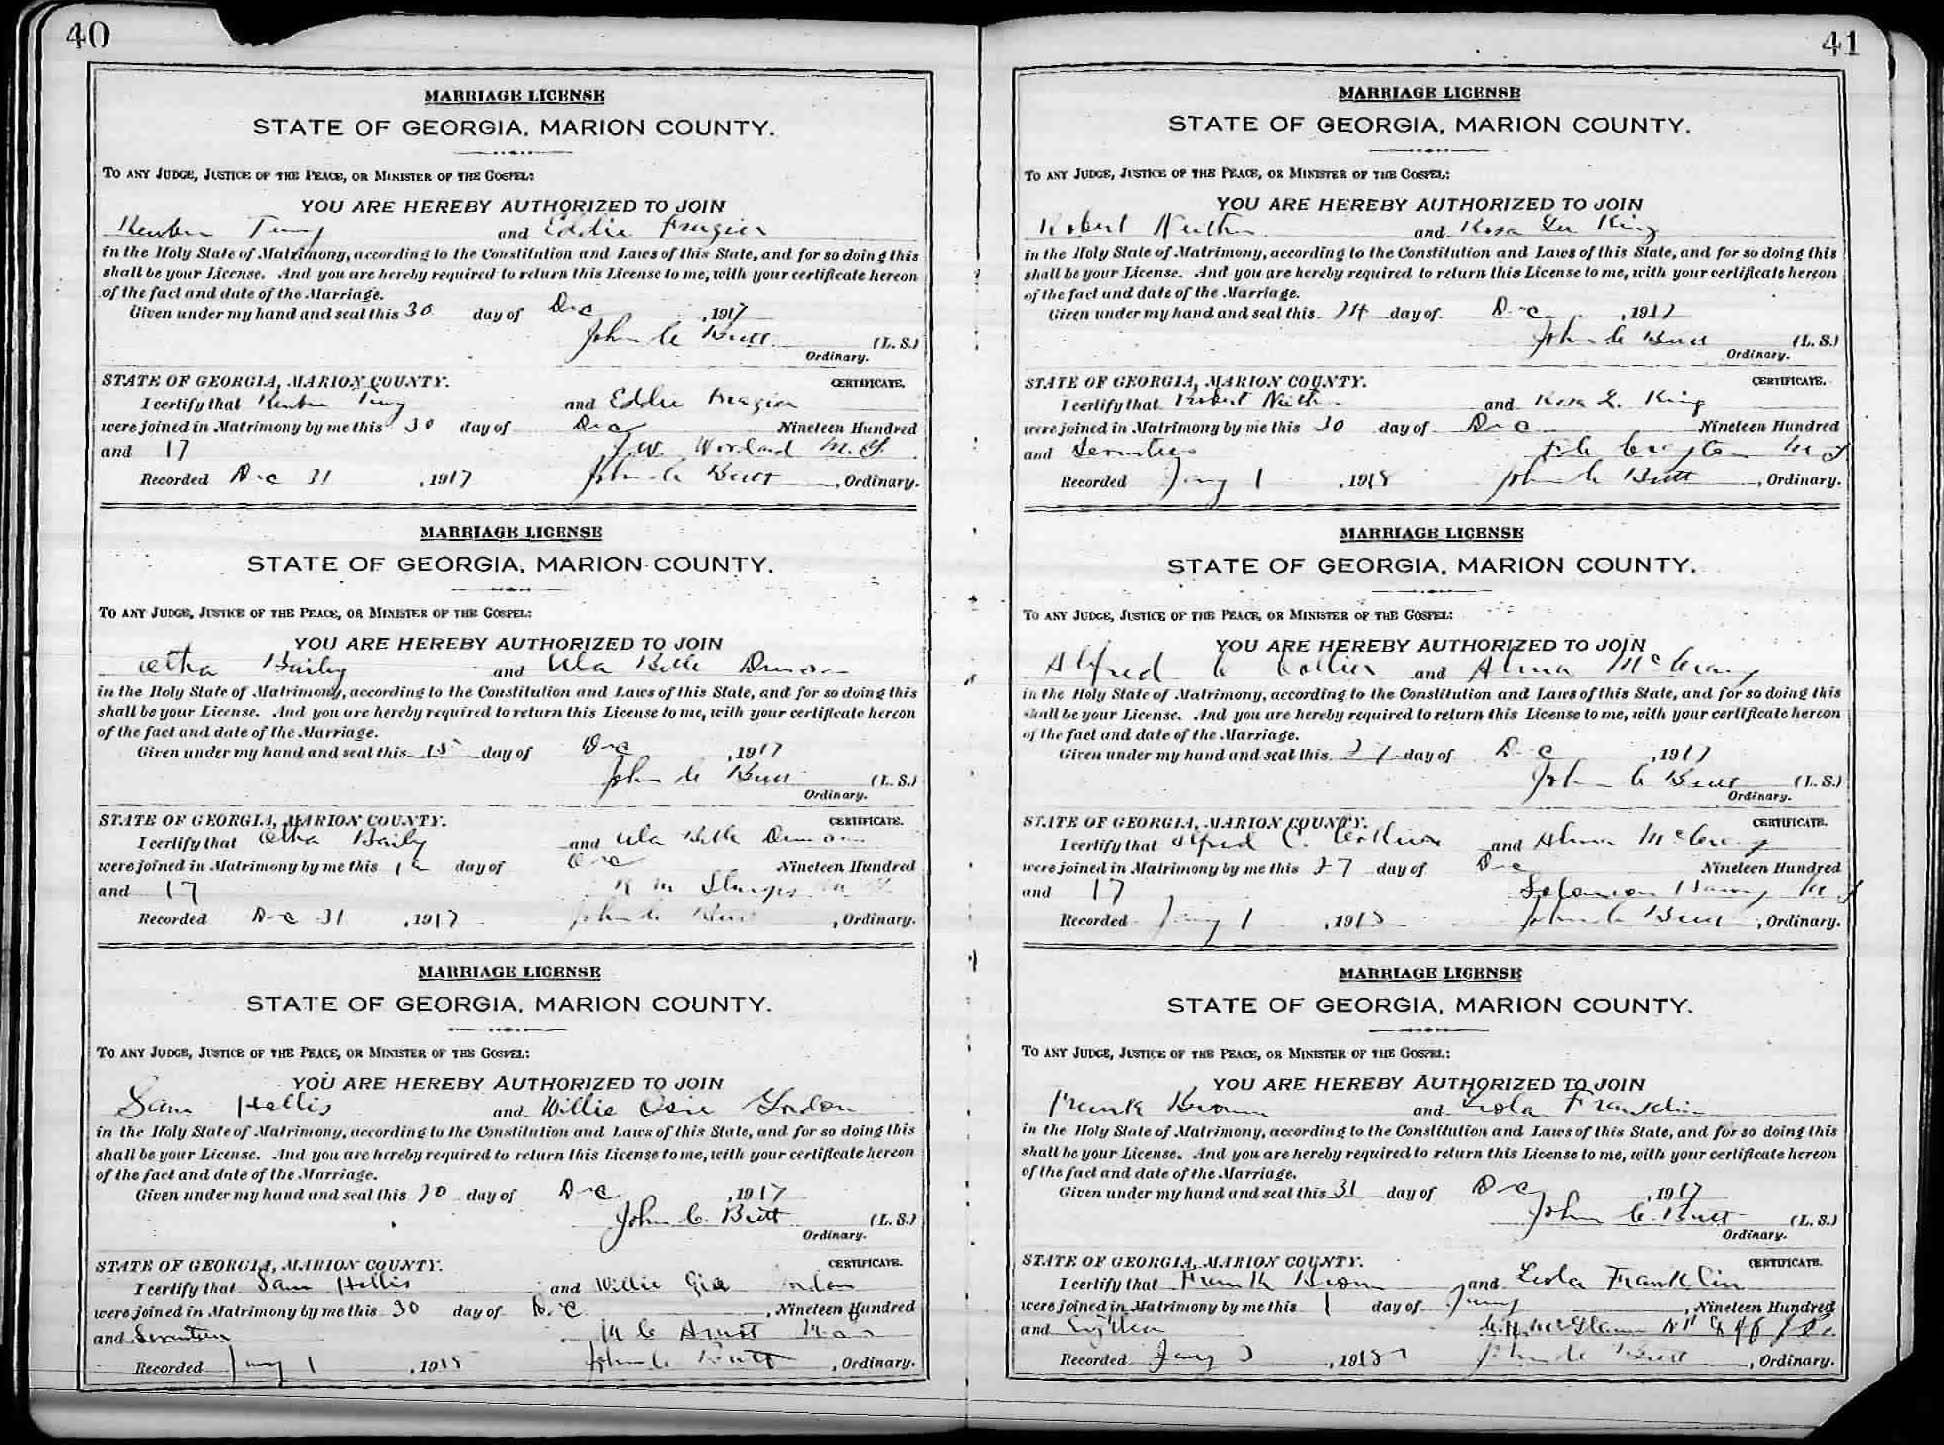 40
MARRIAGE LICENSE
STATE OF GEORGIA, MARION COUNTY.
TO ANY JUDGE, JUSTICE OF THE PEACE, OR MINISTER OF THE GOSPEL:
YOU ARE HEREBY AUTHORIZED TO JOIN
Reuben and Eddie Frazier
in the Holy State of Matrimony, according to the Constitution and Laws of this State, and for so doing this
shall be your License. And you are hereby required to return this License to me, with your certificate hereon
of the fact and date of the Marriage.
Given under my hand and seal this 30 day of Dec , 1917
John C Butt (L. S.)
Ordinary.
STATE OF GEORGIA, MARION COUNTY. CERTIFICATE.
I certify that Reuben and Eddie Frazier
were joined in Matrimony by me this 30 day of Dec Nineteen Hundred
and 17 J. W. M. G.
Recorded Dec 31 , 1917 John C Butt , Ordinary.
MARRIAGE LICENSE
STATE OF GEORGIA, MARION COUNTY.
TO ANY JUDGE, JUSTICE OF THE PEACE, OR MINISTER OF THE GOSPEL:
YOU ARE HEREBY AUTHORIZED TO JOIN
Etha Baily and Ula Belle
in the Holy State of Matrimony, according to the Constitution and Laws of this State, and for so doing this
shall be your License. And you are hereby required to return this License to me, with your certificate hereon
of the fact and date of the Marriage.
Given under my hand and seal this 15 day of Dec , 1917
John C Butt (L. S.)
Ordinary.
STATE OF GEORGIA, MARION COUNTY. CERTIFICATE.
I certify that Etha Baily and Ula Belle
were joined in Matrimony by me this day of Dec Nineteen Hundred
and 17 R M Sturgis M G
Recorded Dec 31 , 1917 John C Butt , Ordinary.
MARRIAGE LICENSE
STATE OF GEORGIA, MARION COUNTY.
TO ANY JUDGE, JUSTICE OF THE PEACE, OR MINISTER OF THE GOSPEL:
YOU ARE HEREBY AUTHORIZED TO JOIN
Sam Hollis and Willie Gordon
in the Holy State of Matrimony, according to the Constitution and Laws of this State, and for so doing this
shall be your License. And you are hereby required to return this License to me, with your certificate hereon
of the fact and date of the Marriage.
Given under my hand and seal this day of Dec , 1917
John C. Butt (L. S.)
Ordinary.
STATE OF GEORGIA, MARION COUNTY. CERTIFICATE.
I certify that Sam Hollis and Willie Gordon
were joined in Matrimony by me this 30 day of Dec , Nineteen Hundred
and Seventeen M C
Recorded Jany 1 , 1918 John C Butt , Ordinary.
41
MARRIAGE LICENSE
STATE OF GEORGIA, MARION COUNTY.
TO ANY JUDGE, JUSTICE OF THE PEACE, OR MINISTER OF THE GOSPEL:
YOU ARE HEREBY AUTHORIZED TO JOIN
Robert and Rosa Lee King
in the Holy State of Matrimony, according to the Constitution and Laws of this State, and for so doing this
shall be your License. And you are hereby required to return this License to me, with your certificate hereon
of the fact and date of the Marriage.
Given under my hand and seal this 24 day of Dec , 1917
John C Butt (L. S.)
Ordinary.
STATE OF GEORGIA, MARION COUNTY. CERTIFICATE.
I certify that Robert and Rosa L. King
were joined in Matrimony by me this 30 day of Dec Nineteen Hundred
and Seventeen M G
Recorded Jany 1 , 1918 John C Butt , Ordinary.
MARRIAGE LICENSE
STATE OF GEORGIA, MARION COUNTY.
TO ANY JUDGE, JUSTICE OF THE PEACE, OR MINISTER OF THE GOSPEL:
YOU ARE HEREBY AUTHORIZED TO JOIN
Alfred C Collier and Alma McCrary
in the Holy State of Matrimony, according to the Constitution and Laws of this State, and for so doing this
shall be your License. And you are hereby required to return this License to me, with your certificate hereon
of the fact and date of the Marriage.
Given under my hand and seal this 27 day of Dec , 1917
John C Butt (L. S.)
Ordinary.
STATE OF GEORGIA, MARION COUNTY. CERTIFICATE.
I certify that Alfred C. Collier and Alma McCrary
were joined in Matrimony by me this 27 day of Dec Nineteen Hundred
and 17 Solomon M G
Recorded Jany 1 , 1918 John C Butt , Ordinary.
MARRIAGE LICENSE
STATE OF GEORGIA, MARION COUNTY.
TO ANY JUDGE, JUSTICE OF THE PEACE, OR MINISTER OF THE GOSPEL:
YOU ARE HEREBY AUTHORIZED TO JOIN
Frank Brown and Leola Franklin
in the Holy State of Matrimony, according to the Constitution and Laws of this State, and for so doing this
shall be your License. And you are hereby required to return this License to me, with your certificate hereon
of the fact and date of the Marriage.
Given under my hand and seal this 31 day of Dec , 1917
John C. Butt (L. S.)
Ordinary.
STATE OF GEORGIA, MARION COUNTY. CERTIFICATE.
I certify that Frank Brown and Leola Franklin
were joined in Matrimony by me this 1 day of Jany , Nineteen Hundred
and
Recorded Jany 3 , 1918 John C Butt , Ordinary.